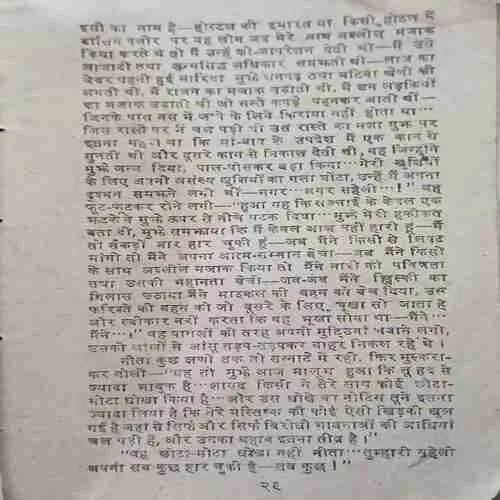 इसी का नाम है—होस्टल की इमारत या किसी होटल में
रात्रि भोज पर वह लोग जब मेरे साथ अश्लील मजाक
किया करते थे तो मैं उन्हें को-आपरेशन देती थी—मैं उसे
आजादी तथा जन्मसिद्ध अधिकार समझती थी—लाज का
जेवर पहनी हुई नारियां मुझे घटिया श्रेणी की
लगती थीं, मैं राजन का मजाक उड़ाती थी, मैं उन लड़कियों
का मजाक उड़ाती थी जो सस्ते कपड़े पहनकर आती थीं—
जिनके पास बस में जाने के लिये किराया नहीं होता था···
जिस रास्ते पर मैं चल पड़ी थी उस रास्ते का नशा मुझ पर
इतना गहरा था कि मां-बाप के उपदेश मैं एक कान से
सुनती थी और दूसरे कान से निकाल देती थी, वह जिन्होंने
मुझे जन्म दिया, पाल-पोसकर बड़ा किया···मेरी खुशियों
के लिए अपनी असंख्य खुशियों का गला घोंटा, उन्हें मैं अपना
दुश्मन समझने लगी थी—मगर···मगर सहेली···!" वह
फूट-फूटकर रोने लगी—"हुआ यह कि सच्चाई के केवल एक
झटके ने मुझे ऊपर से नीचे पटक दिया···मुझे मेरी हकीकत
बता दी, मुझे समझाया कि मैं केवल आज नहीं हारी हूं—मैं
तो सैंकड़ों बार हार चुकी हूं—जब मैंने किसी से लिफ्ट
मांगी तो मैंने अपना आत्म-सम्मान बेचा—जब मैंने किसी
के साथ अश्लील मजाक किया तो मैंने नारी की पवित्रता
तथा उसकी महानता बेची—जब-जब मैंने व्हिस्की का
गिलास उठाया मैंने माइकल की बहन को बेच दिया, उस
फरिश्ते की बहन को जो दूसरे के लिए भूखा सो जाता है
और स्वीकार नहीं करता कि वह भूखा सोया था—मैंने···
मैंने···।" वह पागलों की तरह अपनी मुट्ठियां चबाने लगी,
उसकी आंखों से आंसू तड़प-तड़पकर बाहर निकल रहे थे।
नीता कुछ क्षणों तक तो सन्नाटे में रही, फिर मुस्करा-
कर बोली—"यह तो मुझे आज मालूम हुआ कि तू हद से
ज्यादा भावुक है···शायद किसी ने तेरे साथ कोई छोटा-
मोटा धोखा किया है···और उस धोखे का नोटिस तूने इतना
ज्यादा लिया है कि तेरे मस्तिष्क की कोई ऐसी खिड़की खुल
गई है जहां से सिर्फ और सिर्फ विरोधी भावनाओं की आंधियां
चल पड़ी हैं, और उनका बहाव इतना तीव्र है।"
"वह छोटा-मोटा धोखा नहीं नीता···तुम्हारी सहेली
अपना सब कुछ हार चुकी है—सब कुछ!"
२९